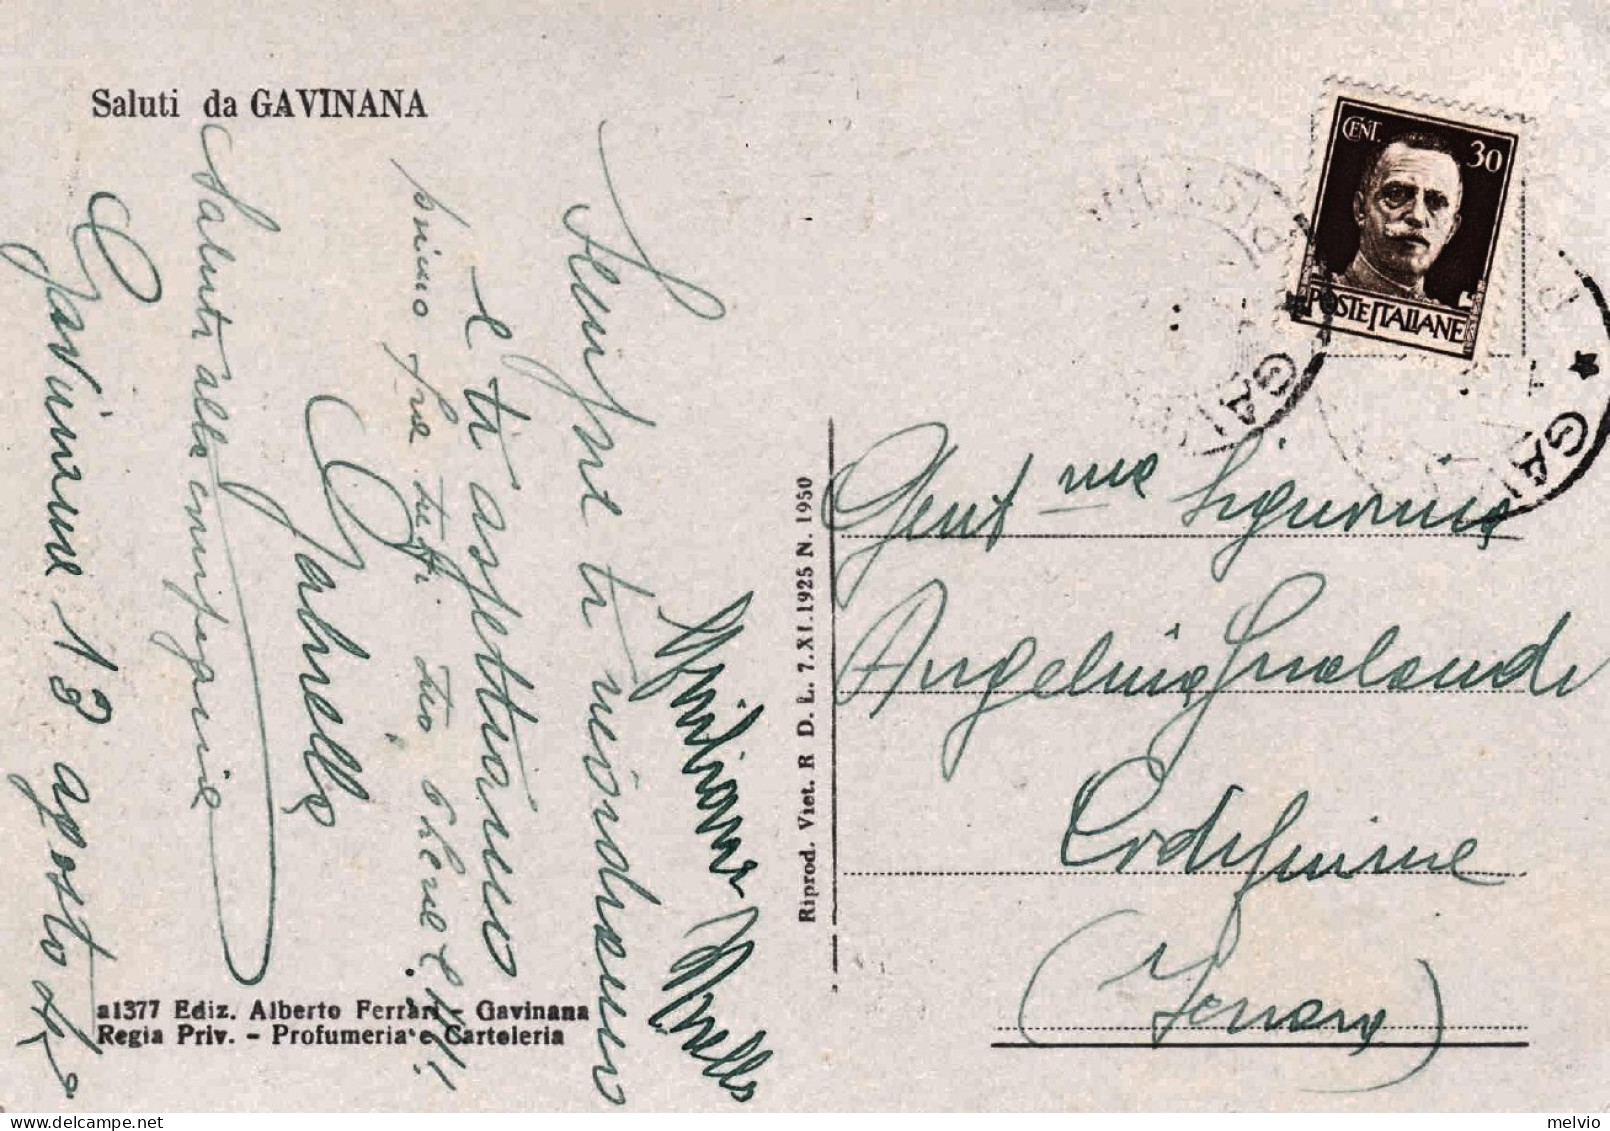 Saluti da GAVINANA
CENT. 30
POSTE ITALIANE
GAVI
GAVI
Gavinana 13 agosto
Saluti alla compagnia
Gabriella
e ti aspettiamo
fra tutti
Sempre ti ricordiamo
Riprod. Viet. R D. L. 7.XI.1925 N. 1950
Gent ma Signorina
Angelina Gualandi
Codifiume
(Ferrara)
a1377 Ediz. Alberto Ferrari - Gavinana
Regia Priv. - Profumeria e Cartoleria
melvio